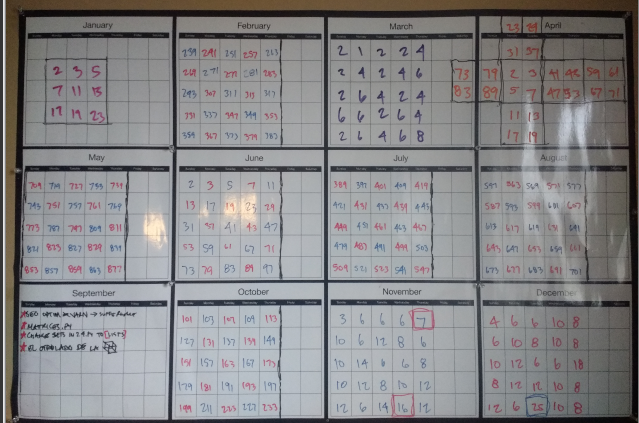 January
2 3 5
7 11 13
17 19 23
February
239 241 251 257 263
269 271 277 281 283
293 307 311 313 317
331 337 347 349 353
359 367 373 379 383
March
2 1 2 2 4
2 4 2 4 6
2 6 4 2 4
6 6 2 6 4
2 6 4 6 8
April
23 29
31 37
73 79 2 3 41 43 59 61
83 89 5 7 47 53 67 71
11 13
17 19
May
709 719 727 733 739
743 751 757 761 769
773 787 797 809 811
821 823 827 829 839
853 857 859 863 877
June
2 3 5 7 11
13 17 19 23 29
31 37 41 43 47
53 59 61 67 71
73 79 83 89 97
July
389 397 401 409 419
421 431 433 439 443
449 457 461 463 467
479 487 491 499 503
509 521 523 541 547
August
557 563 569 571 577
587 593 599 601 607
613 617 619 631 641
643 647 653 659 661
673 677 683 691 701
September
MATRICES.PY
EL OTRO LADO DE LA
October
101 103 107 109 113
127 131 137 139 149
151 157 163 167 173
179 181 191 193 197
199 211 223 227 233
November
3 6 6 6 7
10 6 12 8 6
10 14 6 6 8
10 12 8 10 12
12 6 14 16 12
December
4 6 6 10 8
6 10 8 10 8
10 12 6 6 18
8 12 12 10 8
12 6 25 10 8